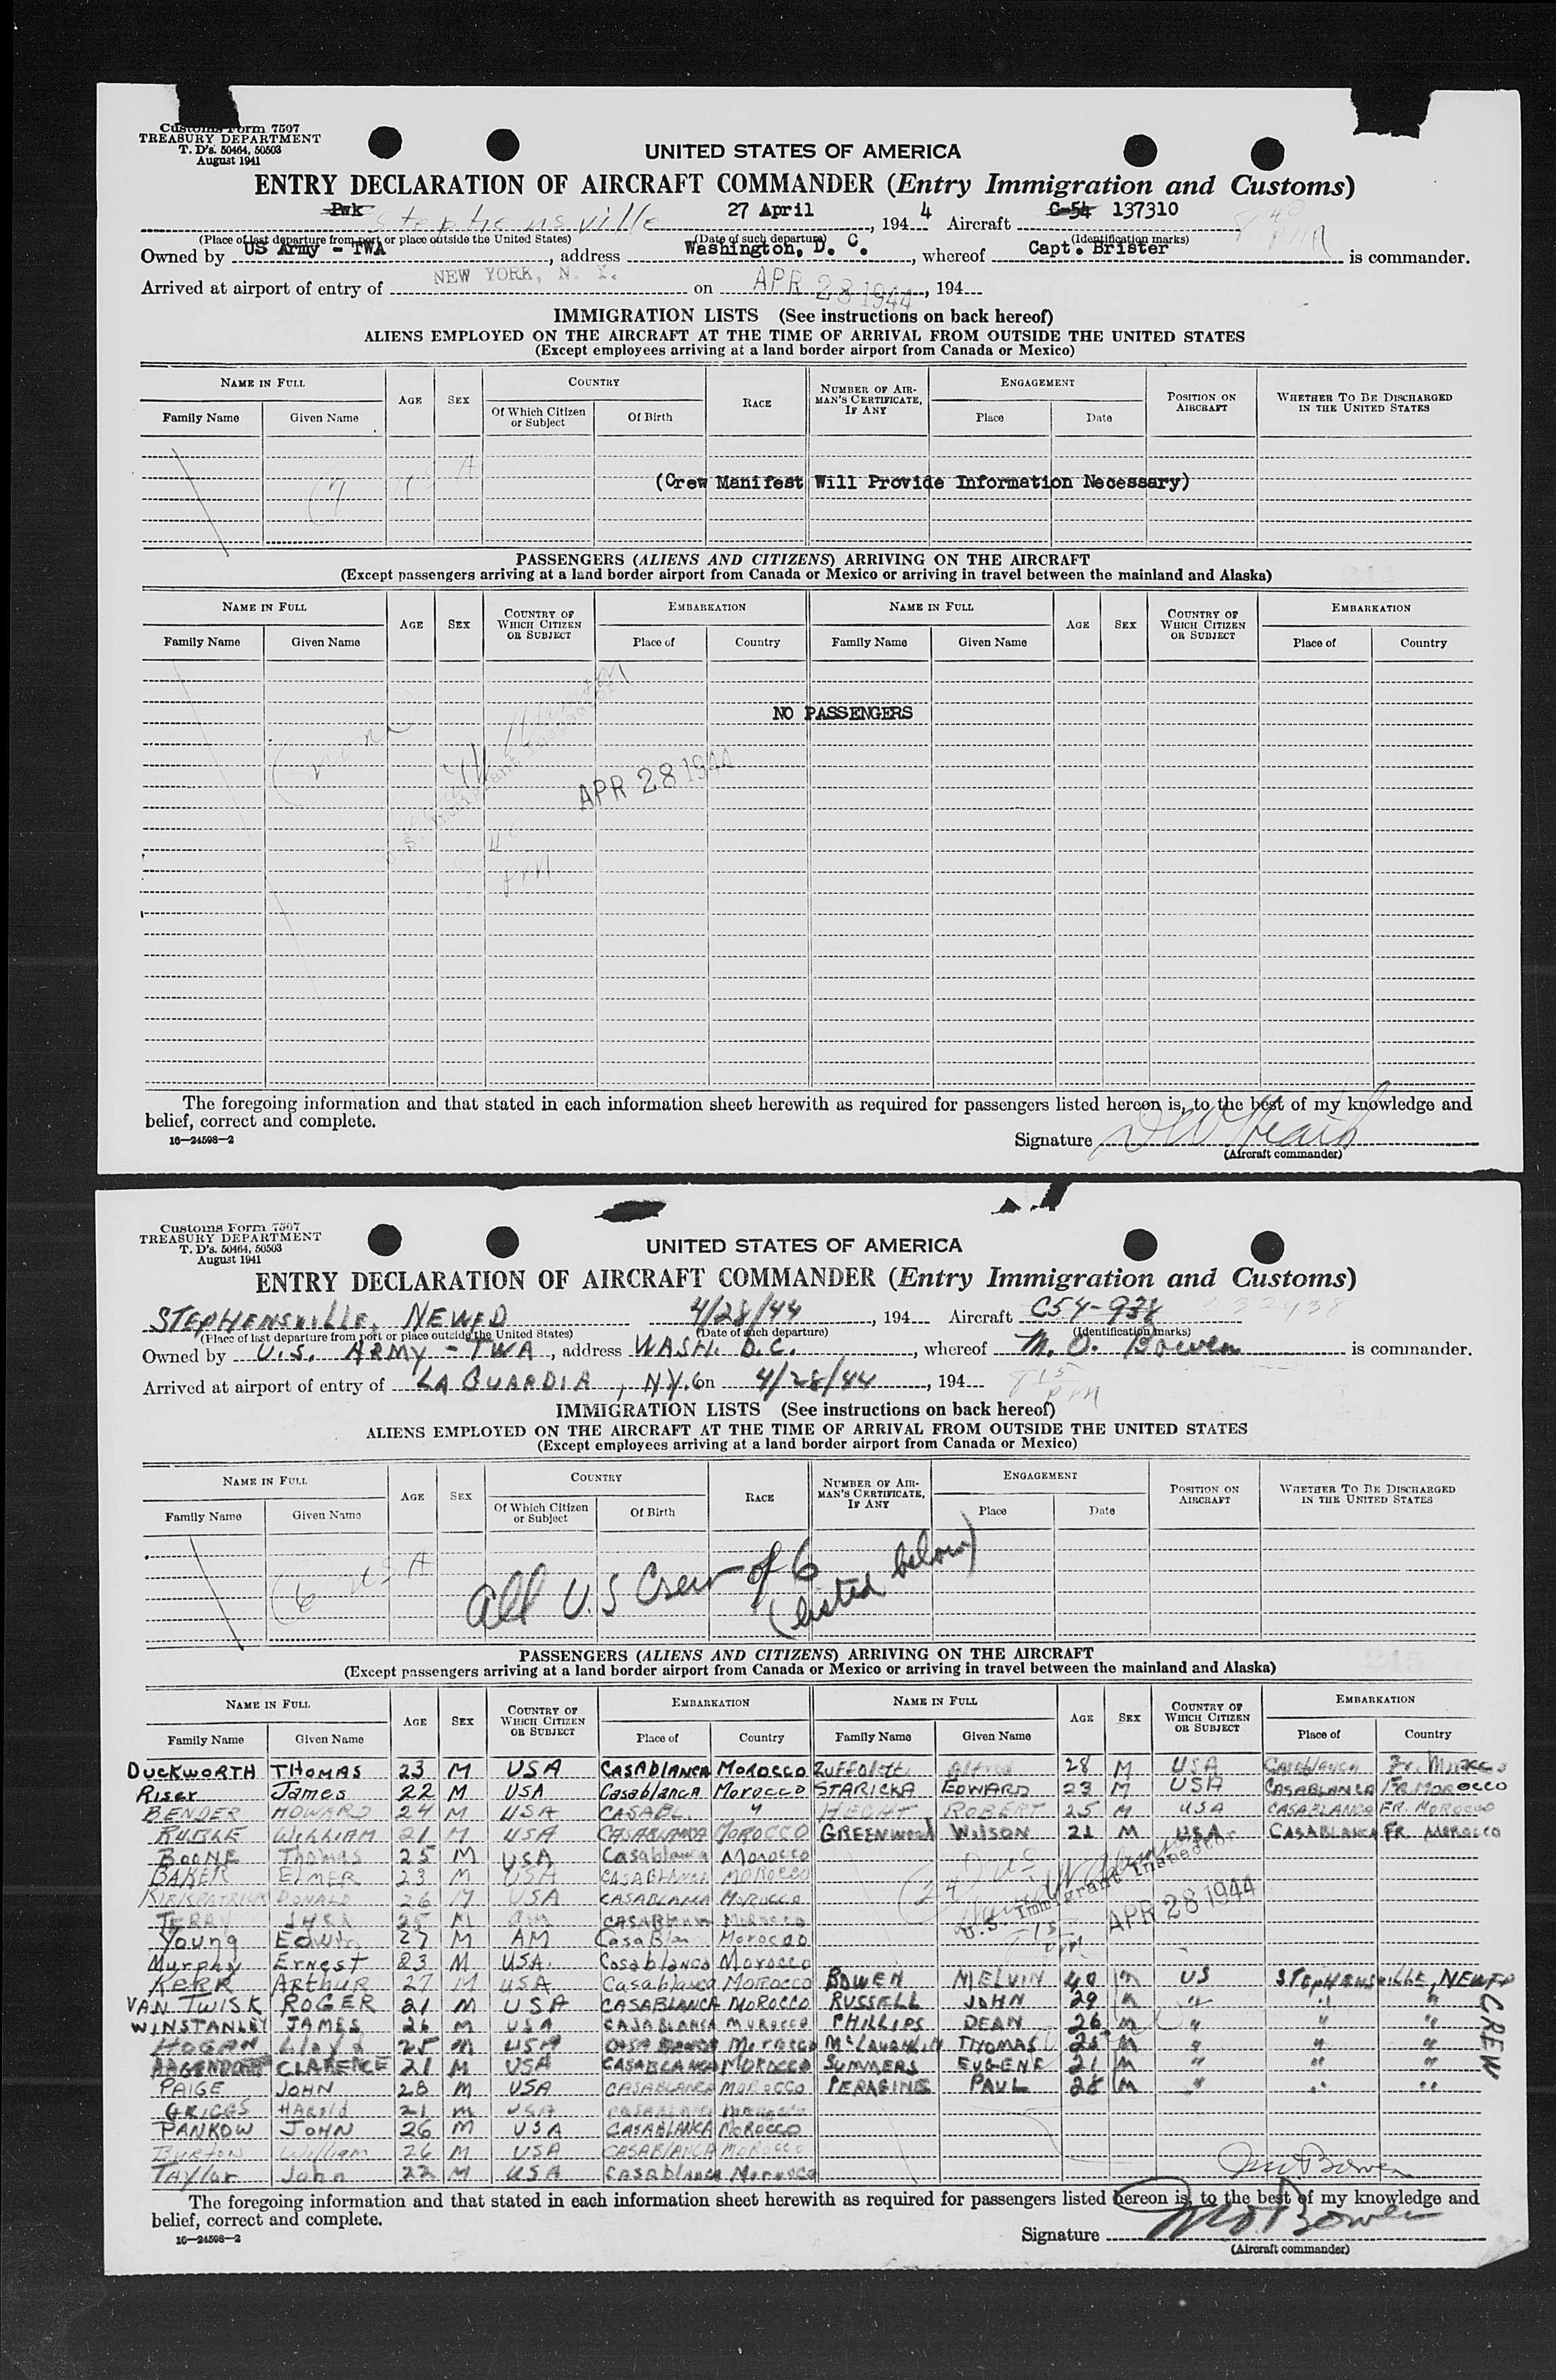 Customs Form 7507
TREASURY DEPARTMENT
T. D's. 50464, 50503
August 1941
UNITED STATES OF AMERICA
ENTRY DECLARATION OF AIRCRAFT COMMANDER (Entry Immigration and Customs)
Pwk Stephensville 27 April, 1944 Aircraft C-54 137310
8 40 PM
(Place of last departure from port or place outside the United States) (Date of such departure) (Identification marks)
Owned by US Army - TWA, address Washington, D. C., whereof Capt. Brister is commander.
Arrived at airport of entry of NEW YORK, N. Y. on APR 28 1944, 194
IMMIGRATION LISTS (See instructions on back hereof)
ALIENS EMPLOYED ON THE AIRCRAFT AT THE TIME OF ARRIVAL FROM OUTSIDE THE UNITED STATES
(Except employees arriving at a land border airport from Canada or Mexico)
NAME IN FULL AGE SEX COUNTRY RACE NUMBER OF AIRMAN'S CERTIFICATE, IF ANY ENGAGEMENT POSITION ON AIRCRAFT WHETHER TO BE DISCHARGED IN THE UNITED STATES
Family Name Given Name Of Which Citizen or Subject Of Birth Place Date
(7 USA
(Crew Manifest Will Provide Information Necessary)
PASSENGERS (ALIENS AND CITIZENS) ARRIVING ON THE AIRCRAFT
(Except passengers arriving at a land border airport from Canada or Mexico or arriving in travel between the mainland and Alaska)
NAME IN FULL AGE SEX COUNTRY OF WHICH CITIZEN OR SUBJECT EMBARKATION NAME IN FULL AGE SEX COUNTRY OF WHICH CITIZEN OR SUBJECT EMBARKATION
Family Name Given Name Place of Country Family Name Given Name Place of Country
NO PASSENGERS
(none)
U. S. Immigrant Inspector
APR 28 1944
8 40 PM
The foregoing information and that stated in each information sheet herewith as required for passengers listed hereon is, to the best of my knowledge and
belief, correct and complete.
16—24598-2
Signature
(Aircraft commander)
Customs Form 7507
TREASURY DEPARTMENT
T. D's. 50464, 50503
August 1941
UNITED STATES OF AMERICA
ENTRY DECLARATION OF AIRCRAFT COMMANDER (Entry Immigration and Customs)
STEPHENSVILLE, NEWFD 4/28/44, 194 Aircraft C54-938
(Place of last departure from port or place outside the United States) (Date of such departure) (Identification marks)
Owned by U.S. ARMY - TWA, address WASH. D.C., whereof M. O. Bowen is commander.
Arrived at airport of entry of LA GUARDIA, NY.C on 4/28/44, 194
8 15 PM
IMMIGRATION LISTS (See instructions on back hereof)
ALIENS EMPLOYED ON THE AIRCRAFT AT THE TIME OF ARRIVAL FROM OUTSIDE THE UNITED STATES
(Except employees arriving at a land border airport from Canada or Mexico)
NAME IN FULL AGE SEX COUNTRY RACE NUMBER OF AIRMAN'S CERTIFICATE, IF ANY ENGAGEMENT POSITION ON AIRCRAFT WHETHER TO BE DISCHARGED IN THE UNITED STATES
Family Name Given Name Of Which Citizen or Subject Of Birth Place Date
(6 USA
All U.S Crew of 6
(listed below)
PASSENGERS (ALIENS AND CITIZENS) ARRIVING ON THE AIRCRAFT
(Except passengers arriving at a land border airport from Canada or Mexico or arriving in travel between the mainland and Alaska)
245
NAME IN FULL AGE SEX COUNTRY OF WHICH CITIZEN OR SUBJECT EMBARKATION NAME IN FULL AGE SEX COUNTRY OF WHICH CITIZEN OR SUBJECT EMBARKATION
Family Name Given Name Place of Country Family Name Given Name Place of Country
DUCKWORTH THOMAS 23 M USA CASABLANCA MOROCCO ZUFFOLETTI Alfred 28 M USA Casablanca Fr. Morocco
Riser James 22 M USA Casablanca Morocco STARICKA EDWARD 23 M USA CASABLANCA FR. MOROCCO
BENDER HOWARD 24 M USA CASABL. " ROBERT 25 M USA CASABLANCA FR. MOROCCO
RUBLE WILLIAM 21 M USA CASABLANCA MOROCCO GREENWOOD WILSON 21 M USA CASABLANCA FR. MOROCCO
BOONE Thomas 25 M USA Casablanca Morocco
BAKER ELMER 23 M USA CASABLANCA MOROCCO
KIRKPATRICK DONALD 26 M USA CASABLANCA MOROCCO
TERRY 25 M CASABLANCA MOROCCO
Young Edwin 27 M AM Morocco
Murphy ERNEST 23 M USA. Casablanca Morocco
KERR ARTHUR 27 M USA Casablanca MOROCCO BOWEN MELVIN 40 M US STEPHENSVILLE, NEWFD
VAN TWISK ROGER 21 M USA CASABLANCA MOROCCO RUSSELL JOHN 29 M " " "
WINSTANLEY JAMES 26 M USA CASABLANCA MOROCCO PHILLIPS DEAN 26 M " " "
HOGAN Lloyd 25 M USA Morocco McLAUGHLIN THOMAS 25 M " " "
CLARENCE 21 M USA CASABLANCA MOROCCO SUMMERS EUGENE 21 M " " "
PAIGE JOHN 28 M USA CASABLANCA MOROCCO PERAGINE PAUL 28 M " " "
GRIGGS HAROLD 21 M USA CASABLANCA MOROCCO
PANKOW JOHN 26 M USA CASABLANCA MOROCCO
BURTON William 26 M USA CASABLANCA MOROCCO
TAYLOR John 22 M USA Casablanca Morocco
CREW
(24) US
U. S. Immigrant Inspector
APR 28 1944
8 15 PM
MO Bowen
The foregoing information and that stated in each information sheet herewith as required for passengers listed hereon is, to the best of my knowledge and
belief, correct and complete.
16—24598-2
Signature MO Bowen
(Aircraft commander)